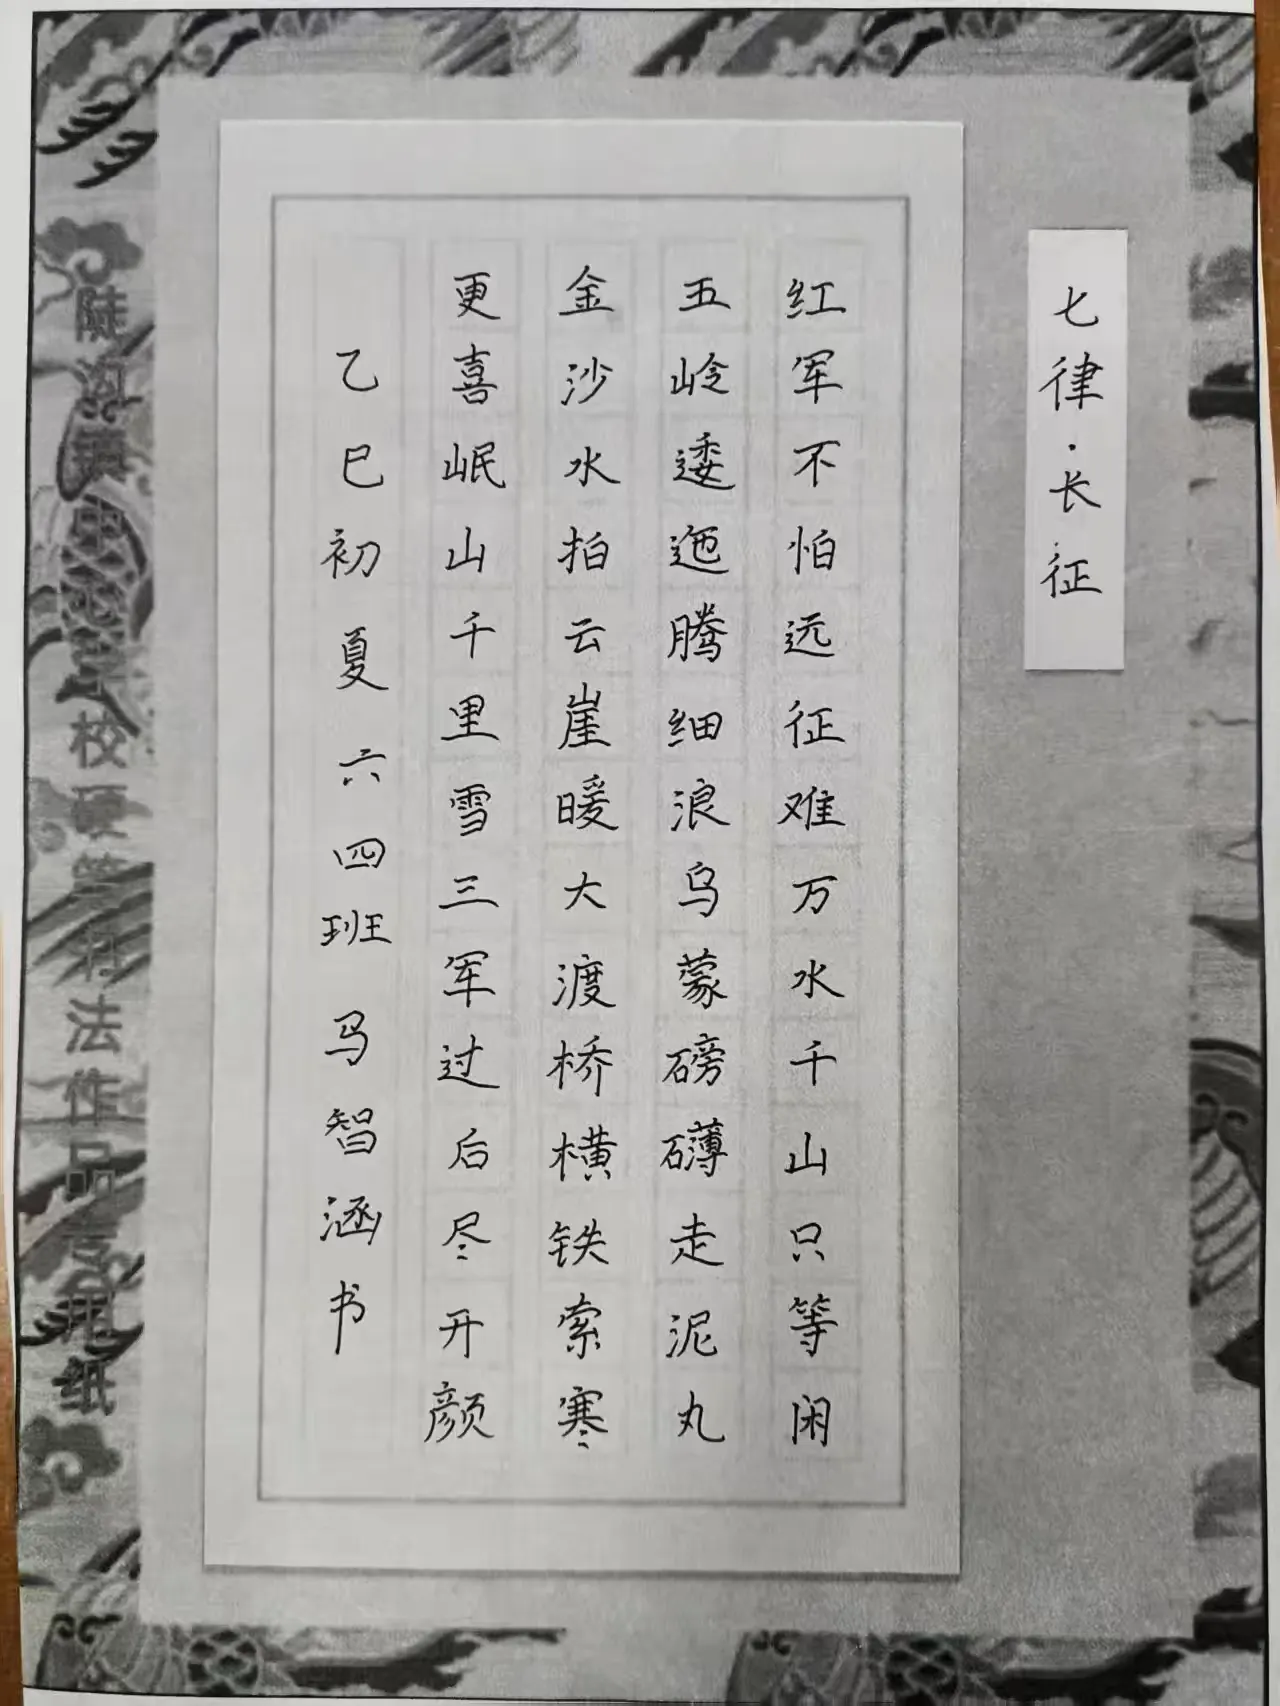 七律·长征
红军不怕远征难万水千山只等闲
五岭逶迤腾细浪乌蒙磅礴走泥丸
金沙水拍云崖暖大渡桥横铁索寒
更喜岷山千里雪三军过后尽开颜
乙巳初夏六四班马智涵书
陡沟镇中心学校硬笔书法作品专用纸